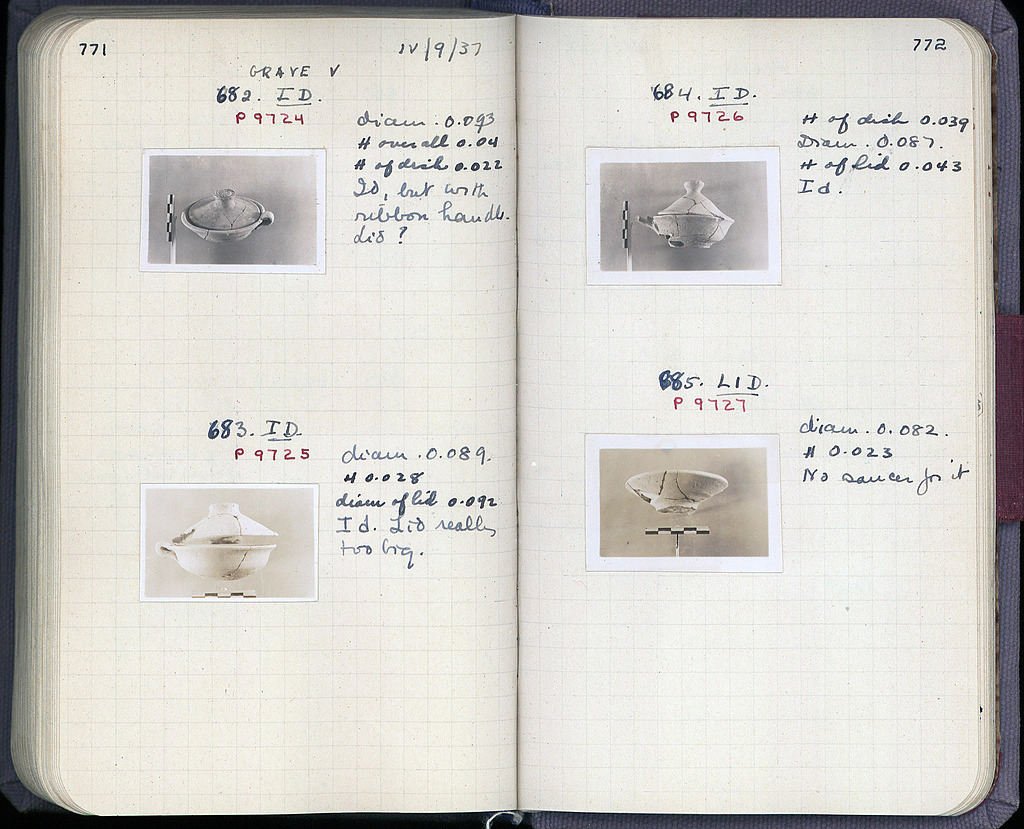 771
IV/9/37
GRAVE V
682. ID.
P 9724
diam. 0.093
H overall 0.04
H of dish 0.022
Id, but with
ribbon handle.
dis?
683. ID.
P 9725
diam. 0.089.
H 0.028
diam of lid 0.092
Id. Lid really
too big.
772
684. ID.
P 9726
H of dish 0.039
Diam. 0.087.
H of lid 0.043
Id.
685. LID.
P 9727
diam. 0.082.
H 0.023
No saucer for it